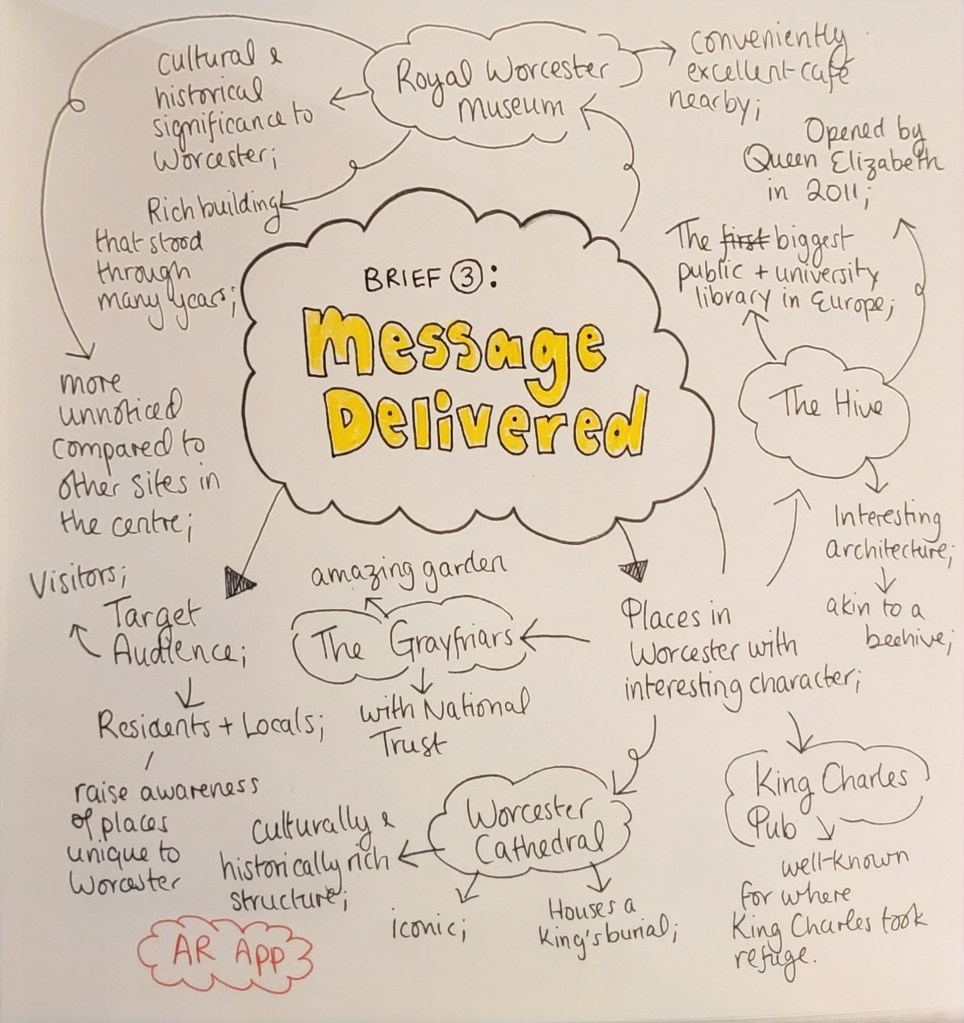 Royal Worcester
Museum
cultural &
historical
significance to
Worcester;
Rich building
that stood
through
many years;
conveniently
excellent cafe
nearby;
more
unnoticed
compared to
other sites in
the centre;
BRIEF ③:
Message
Delivered
Opened by
Queen Elizabeth
in 2011;
The first biggest
public + university
library in Europe;
The Hive
Interesting
architecture;
akin to a
beehive;
Visitors;
Target
Audience;
Residents + Locals;
raise awareness
of places
unique to
Worcester
amazing garden
The Grayfriars
with National
Trust
Places in
Worcester with
interesting character;
Worcester
Cathedral
Culturally &
historically rich
structure;
iconic;
Houses a
King's burial;
King Charles
Pub
well-known
for where
King Charles took
refuge.
AR APP